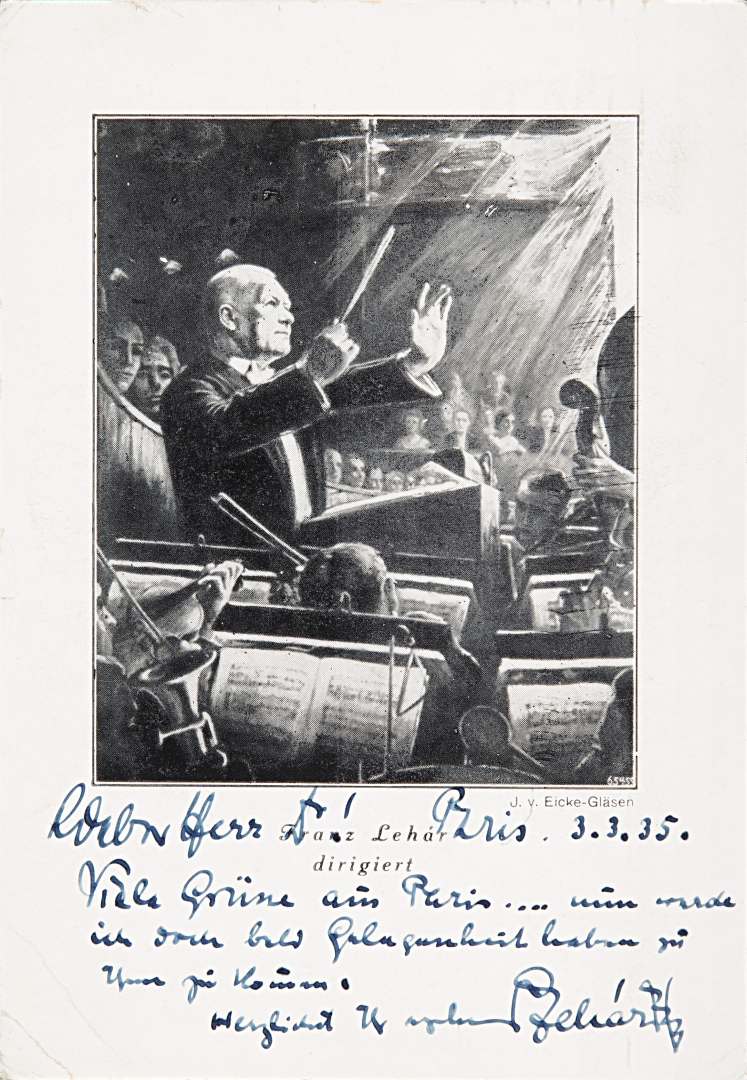 6545
J. v. Eicke-Gläsen
Lieber Herr Dr! Paris. 3.3.35.
Franz Lehár
dirigiert
Viele Grüße aus Paris.... nun werde
ich doch bald Gelegenheit haben zu
Ihnen zu kommen.
Herzlichst Ihr Lehár